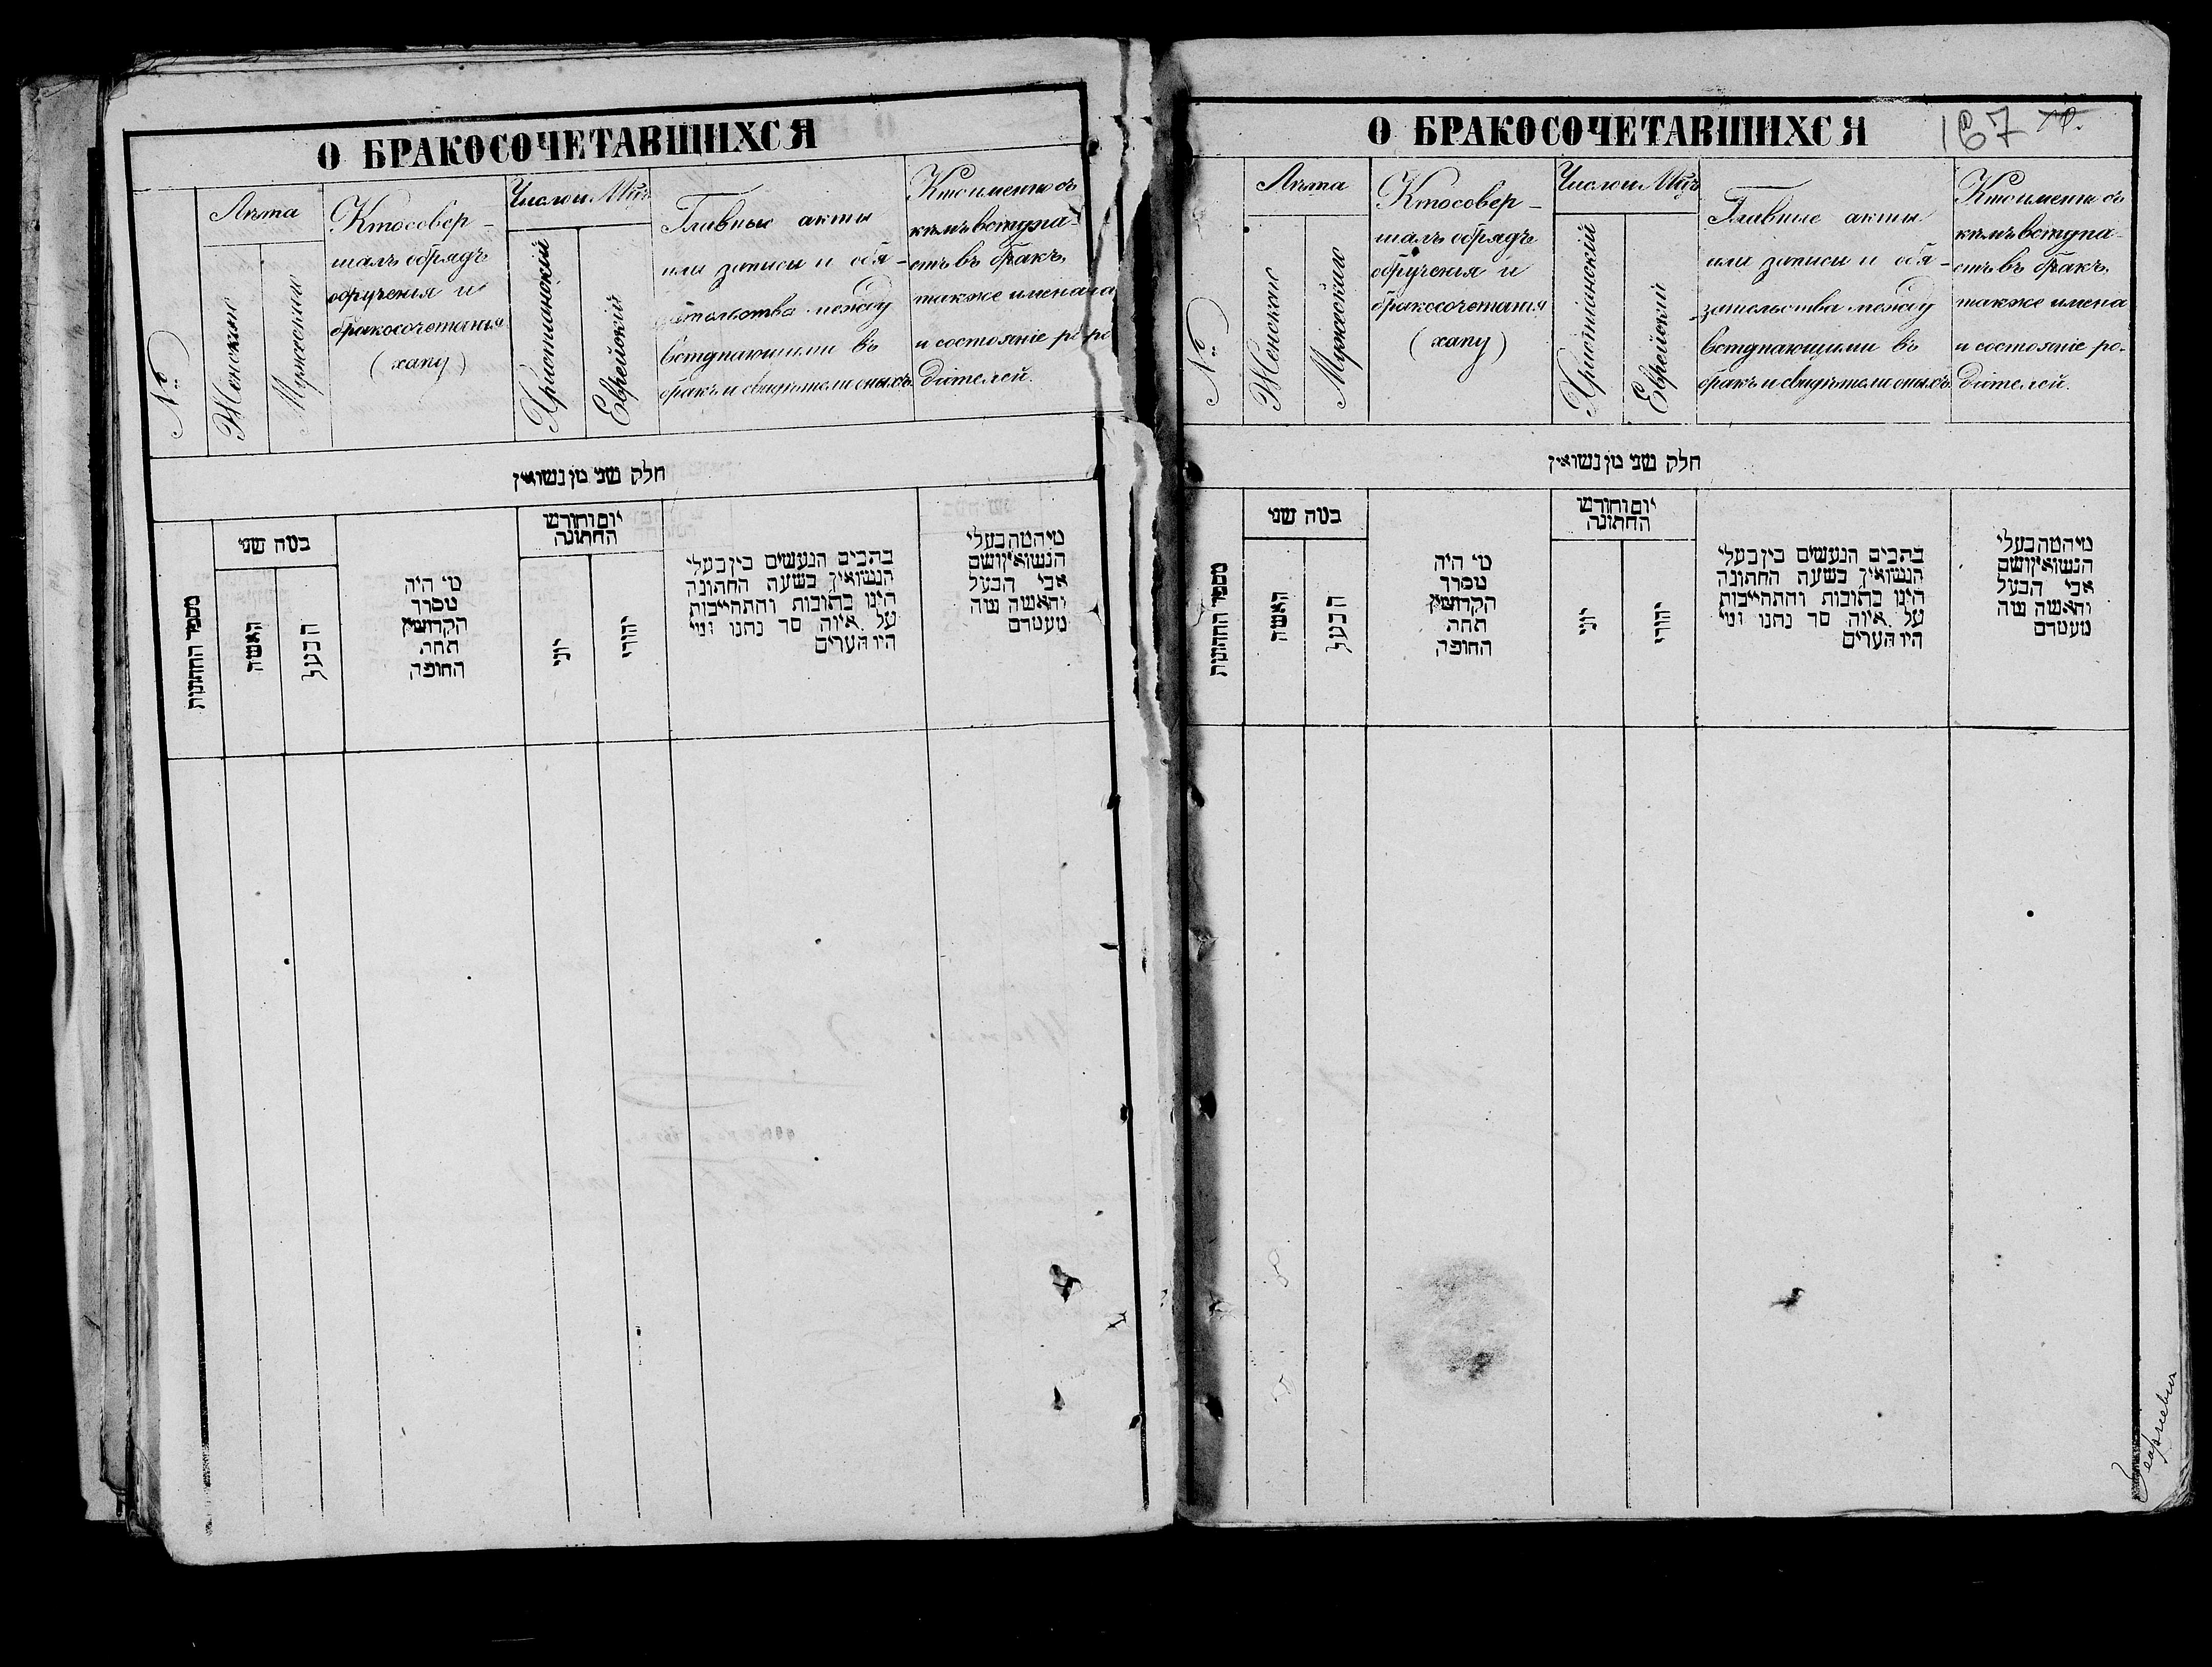 О БРАКОСОЧЕТАВШИХСЯ
№
Лѣта
Женскихъ
Мужескихъ
Кто совер-
шалъ обрядъ
обрученія и
бракосочетанія
(хапу)
Число и Мѣц
Христіанскій
Еврейскій
Главные акты
или записи и обя-
зательства между
вступающими въ
бракъ и свидѣтели оныхъ.
Кто именно съ
кѣмъ вступа-
етъ въ бракъ,
также имена
и состояніе ро-
дителей.
חלק שני מן נשואין
מספר החתונות
כמה שני
האשה
הבעל
מי היה
מסדר
הקדושין
תחת
החופה
יום וחודש
החתונה
יוני
יהודי
כתבים הנעשים בין בעלי
הנשואין בשעת החתונה
היינו כתובות והתחייבות
על איזה סך נתנו ומי
היו העדים
מי המה בעלי
הנשואין ושם
אבי הבעל
והאשה מה
מעמדם
О БРАКОСОЧЕТАВШИХСЯ
167
№
Лѣта
Женскихъ
Мужескихъ
Кто совер-
шалъ обрядъ
обрученія и
бракосочетанія
(хапу)
Число и Мѣц
Христіанскій
Еврейскій
Главные акты
или записи и обя-
зательства между
вступающими въ
бракъ и свидѣтели оныхъ.
Кто именно съ
кѣмъ вступа-
етъ въ бракъ,
также имена
и состояніе ро-
дителей.
חלק שני מן נשואין
מספר החתונות
כמה שני
האשה
הבעל
מי היה
מסדר
הקדושין
תחת
החופה
יום וחודש
החתונה
יוני
יהודי
כתבים הנעשים בין בעלי
הנשואין בשעת החתונה
היינו כתובות והתחייבות
על איזה סך נתנו ומי
היו העדים
מי המה בעלי
הנשואין ושם
אבי הבעל
והאשה מה
מעמדם